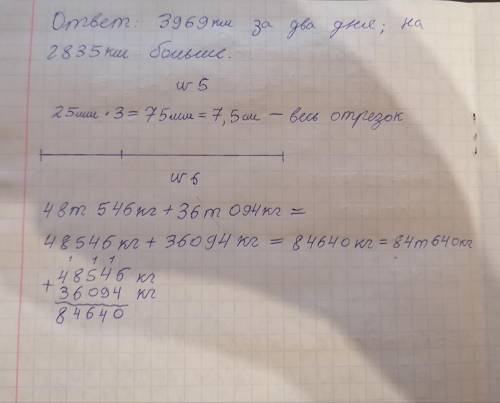 Ответ: 3969 км за два дня; на
2835 км больше.
№ 5
25мм · 3 = 75мм = 7,5см – весь отрезок
№ 6
48т 546кг + 36т 094кг =
48546 кг + 36094 кг = 84640кг = 84т640кг
1 1 1
+ 48546 кг
36094 кг
84640